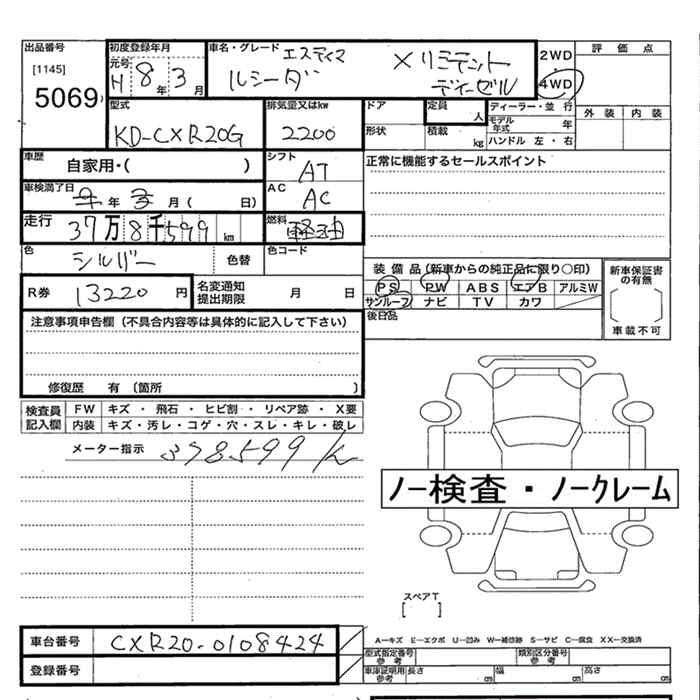 出品番号 初度登録年月 車名・グレード エスティマ Xリミテッド 2WD 評価点
[1145] 元号 H 8年 3月 ルシーダ ディーゼル 4WD
5069 外装 内装
型式 排気量又はkw ドア 定員 人 ディーラー・並行
KD-CXR20G 2200 形状 積載 kg モデル年式 年
ハンドル 左・右
車歴 自家用・( ) シフト AT 正常に機能するセールスポイント
車検満了日 年 月( 日) AC AC
走行 37万8千599km 燃料 軽油
色 シルバー 色替 色コード
装備品(新車からの純正品に限り○印) 新車保証書の有無
R券 13220円 名変通知提出期限 月 日 PS PW ABS エアB アルミW
サンルーフ ナビ TV カワ
後日品 車載不可
注意事項申告欄(不具合内容等は具体的に記入して下さい)
修復歴 有(箇所 )
検査員記入欄 FW キズ・飛石・ヒビ割・リペア跡・X要
内装 キズ・汚レ・コゲ・穴・スレ・キレ・破レ
メーター指示 378599k
ノー検査・ノークレーム
スペアT
[ ]
車台番号 CXR20-0108424 A―キズ E―エクボ U―凹み W―補修跡 S―サビ C―腐食 XX―交換済
型式指定番号 参考 類別区分番号 参考
登録番号 車庫証明用 参考 長さ cm 幅 cm 高さ cm